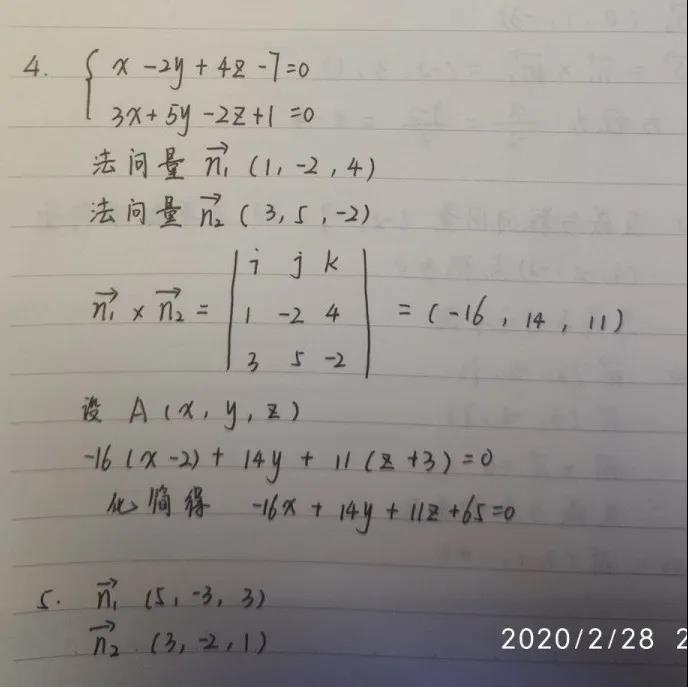 4. { x -2y + 4z -7=0
3x+5y -2z+1 =0
法向量 n₁→ (1, -2, 4)
法向量 n₂→ (3, 5, -2)
n₁→ × n₂→ = | i j k |
| 1 -2 4 | = (-16, 14, 11)
| 3 5 -2 |
设 A(x, y, z)
-16(x-2)+ 14y + 11(z+3)=0
化简得 -16x+14y+11z+65=0
5. n₁→ (5, -3, 3)
n₂→ (3, -2, 1)
2020/2/28 2